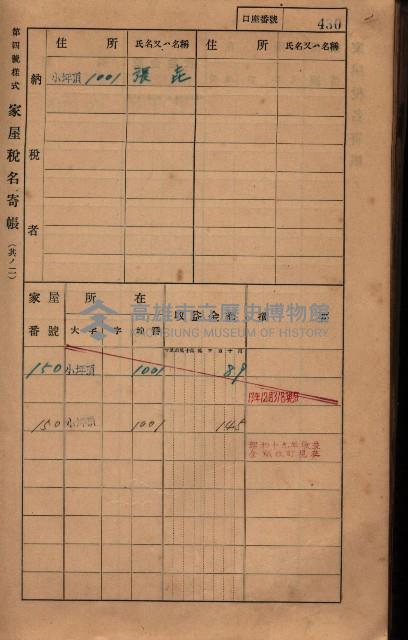 口座番號 430
第四號樣式 家屋稅名寄帳 (其ノ二)
住所 氏名又ハ名稱 住所 氏名又ハ名稱
納稅者
小坪頂 1001 張
家屋番號 所在
大字 字 地番 收益金額 摘要
高雄市立歷史博物館
KAOHSIUNG MUSEUM OF HISTORY
150 小坪頂 1001 89
19年12月31日
150 小坪頂 1001 145
昭和十九年